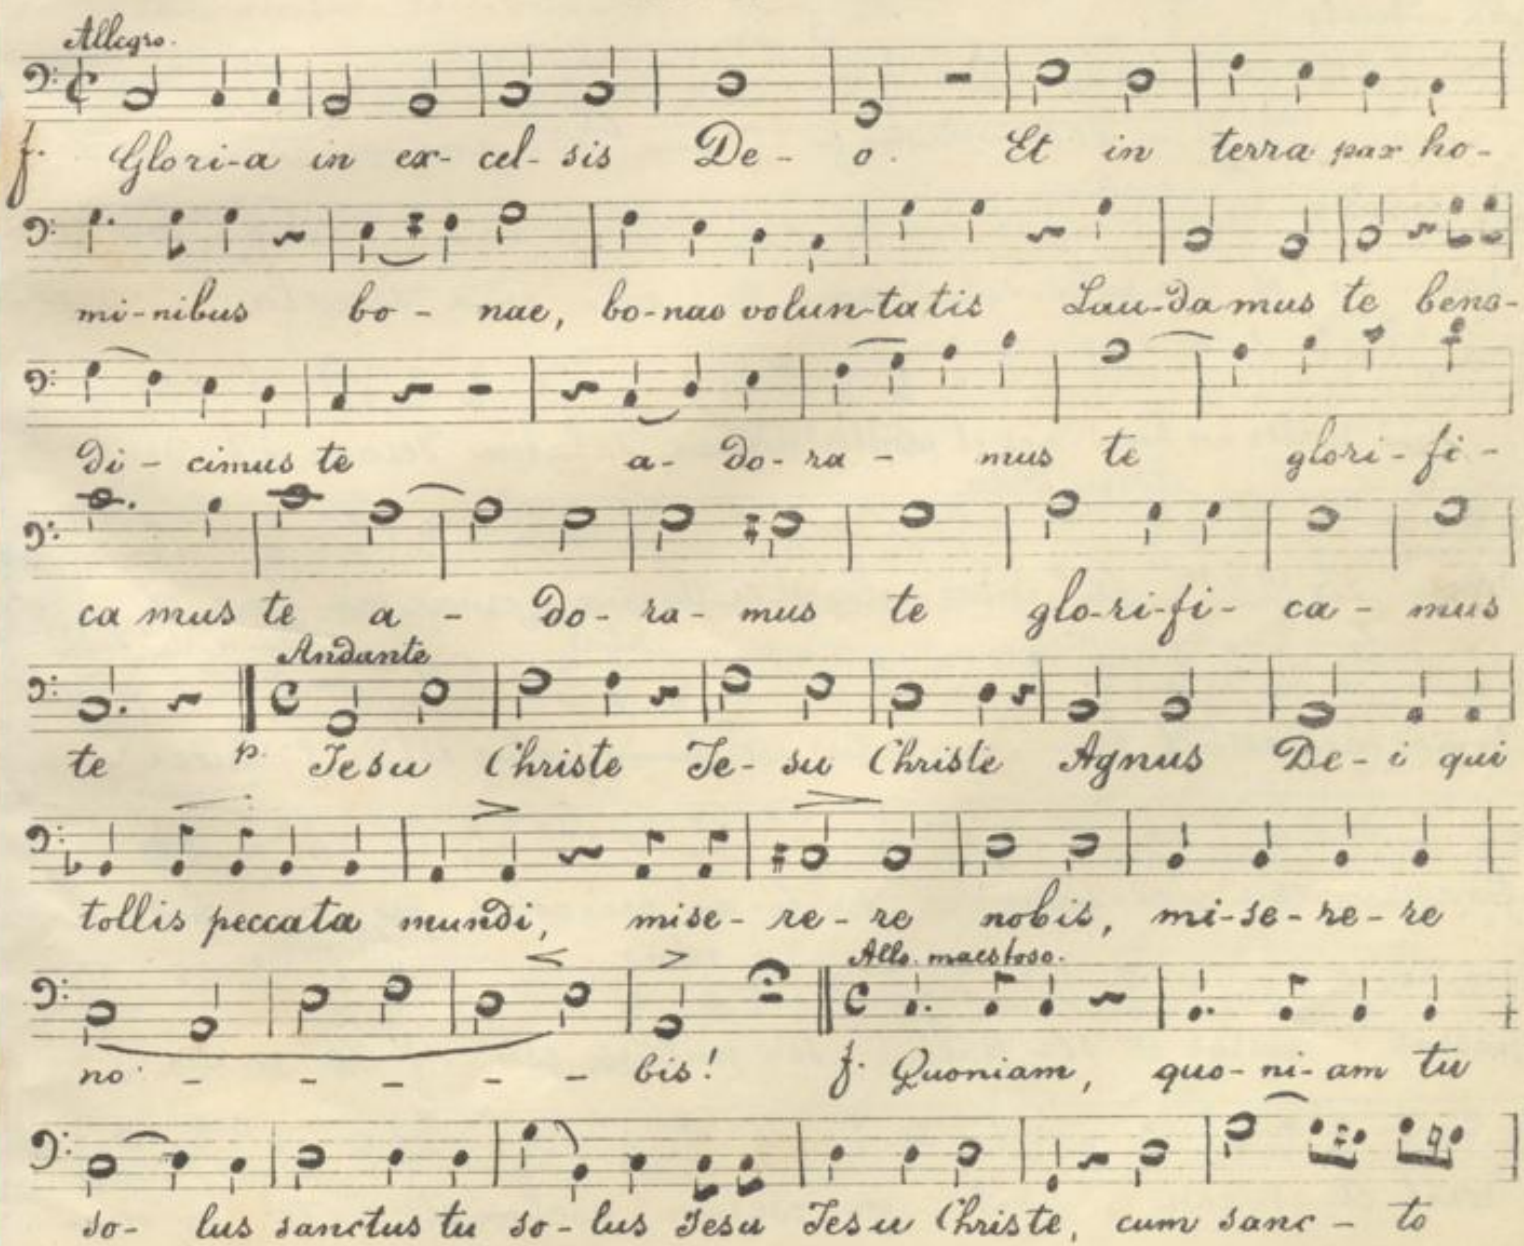 Allegro.
f. Glori-a in ex- cel- sis De - o. Et in terra pax ho-
mi-nibus bo - nae, bo-nae volun-ta tis Lau-da mus te bene-
di - cimus te a- do- ra - mus te glori - fi -
ca mus te a - do- ra- mus te glo-ri-fi- ca - mus
Andante
te p. Jesu Christe Je- su Christe Agnus De- i qui
tollis peccata mundi, mise- re- re nobis, mi-se-re-re
Allo. maestoso.
no - - - - - bis! f. Quoniam, quo- ni- am tu
so- lus sanctus tu so- lus Jesu Jesu Christe, cum sanc - to